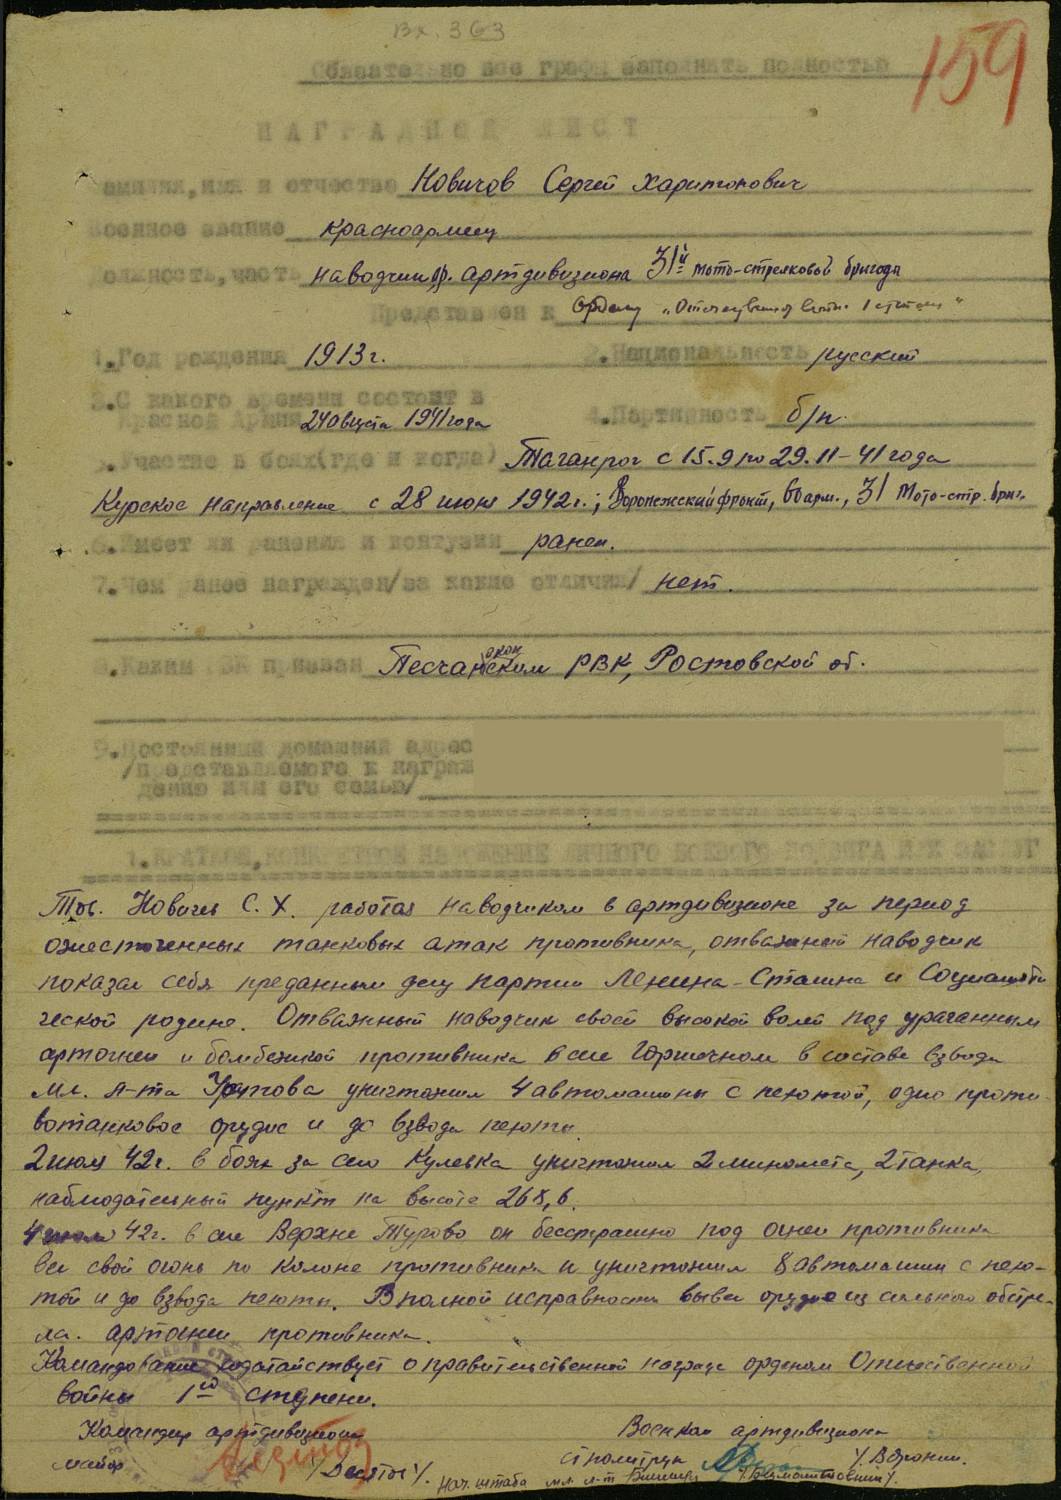 Вх. 363
159
Обязательно все графы заполнять полностью
НАГРАДНОЙ ЛИСТ
Фамилия, имя и отчество Новичов Сергей Харитонович
Военное звание красноармеец
Должность, часть наводчик ар. артдивизиона 31й мото-стрелковой бригады
Представлен к Ордену „Отечественной 1 степени“
1. Год рождения 1913 г. 2. Национальность русский
3. С какого времени состоит в
Красной Армии 24 августа 1941 года 4. Партийность б/п.
5. Участие в боях (где и когда) Таганрог с 15.9 по 29.11-41 года
Курское направление с 28 июня 1942 г.; Воронежский фронт, 60 арм., 31 Мото-стр. бриг.
6. Имеет ли ранения и контузии ранен.
7. Чем ранее награжден/за какие отличия/ нет.
8. Каким РВК призван Песчанокопском РВК, Ростовской об.
9. Постоянный домашний адрес
/представляемого к награж
дению или его семьи/
1. КРАТКОЕ, КОНКРЕТНОЕ ИЗЛОЖЕНИЕ ЛИЧНОГО БОЕВОГО ПОДВИГА ИЛИ ЗАСЛУГ
Тов. Новичев С. Х. работая наводчиком в артдивизионе за период
ожесточенных танковых атак противника, отважный наводчик
показал себя преданным делу партии Ленина-Сталина и Социалисти
ческой родине. Отважный наводчик своей высокой волей под ураганным
артогнем и бомбежкой противника в селе Горшечном в составе взвода
мл. л-та уничтожил 4 автомашины с пехотой, одно проти
вотанковое орудие и до взвода пехоты.
2 июля 42 г. в боях за село Кулевка уничтожил 2 миномета, 2 танка,
наблюдательный пункт на высоте 268,6.
4 июля 42 г. в селе Верхне Турово он бесстрашно под огнем противника
вел свой огонь по колоне противника и уничтожил 8 автомашин с пехо-
той и до взвода пехоты. В полной исправности вывел орудие из сильного обстре-
ла. артогнем противника.
Командование ходатайствует о правительственной награде орденом Отечественной
войны 1ой степени.
Командир артдивизиона Военком артдивизиона
майор /Десятов/. ст политрук /Воронин.
Нач. штаба мл. л-т